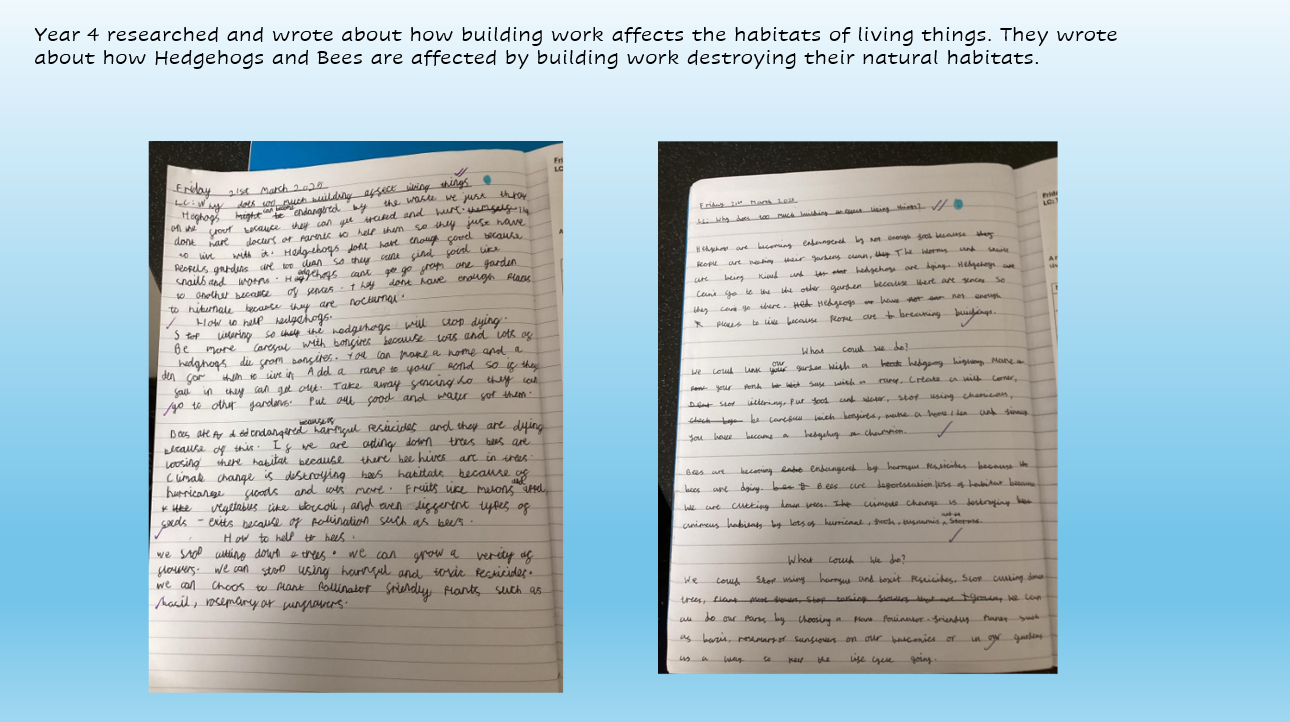 Year 4 researched and wrote about how building work affects the habitats of living things. They wrote
about how Hedgehogs and Bees are affected by building work destroying their natural habitats.
Friday 21st March 2025
L.C: Why does too much building affect living things.
Heghogs can become endangered by the waste we just throw
on the floor because they can get tracked and hurt. In
dont have doctors or Parents to help them so they just have
to live with it. Hedgehogs dont have enough food because
People's gardens are too clean so they cant find food like
snails and worms. Hedgehogs cant go from one garden
to another because of fences. They dont have enough places
to hibernate because they are nocturnal.
How to help hedgehogs.
Stop littering so the hedgehogs will stop dying.
Be more careful with bonfires because lots and lots of
hedghogs die from bonfires. You can make a home and a
den for them to live in Add a ramp to your pond so if they
fall in they can get out. Take away fencing so they can
go to other gardens. Put out food and water for them.
Bees are endangered because of harmful Pesticides and they are dying
because of this. If we are cutting down trees bees are
loosing there habitat because there bee hives are in trees.
Climate change is destroying bees habitats because of
hurricanes floods and lots more. Fruits like melons and
vegetables like broccoli, and even different types of
seeds - exits because of Pollination such as bees.
How to help bees.
we stop cutting down trees. we can grow a verity of
flowers. We can stop using harmful and toxic Pesticides.
we can choos to Plant Pollinator friendly Plants such as
basil, rosemary or sunflowers.
Friday 21st March 2025
LC: Why does too much building affect living things?
Hedgehog are becoming endangered by not enough food because
People are making their gardens clean, The Worms and
are being Killed and hedgehogs are dying. Hedgehogs
Can't go to the the other garden because there are fences so
they cant go there. Hedgeogs have not enough
Places to live because People are breaking
What could we do?
We could link our garden with a hedgehog highway, Make
your Pond safe with a ramp, Create a wild corner,
Stop littering, Put food and water, stop using chemicals,
be carefull with bonfires, make a home/den and
you have became a hedgehog Champion.
Bees are becoming endangered by harmful Pesticides because
bees are dying. Bees are deforestation/loss of habitat because
We are cutting down trees. Climate change is destroying
animals habitats by loss of hurrican
What could We do?
We could Stop using harmful and toxit Pesticides, Stop cutting down
trees, Plant We can
all do our Part by choosing a Plant Pollinator-friendly Plants such
as basil, rosemary or sunflowers on our balconies or in our gardens
as a way to keep the life cycle going.